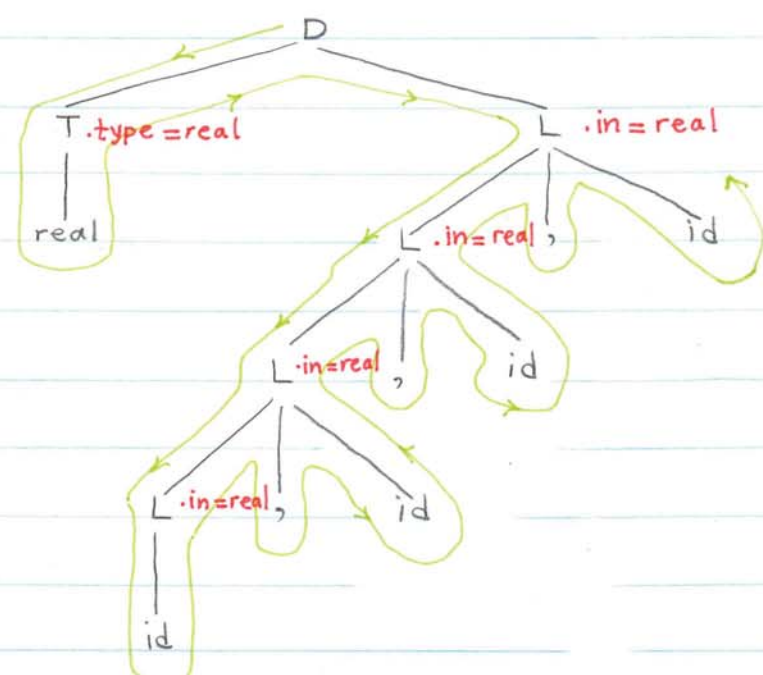 D
T .type = real L .in = real
real L .in = real , id
L .in = real , id
L .in = real , id
id